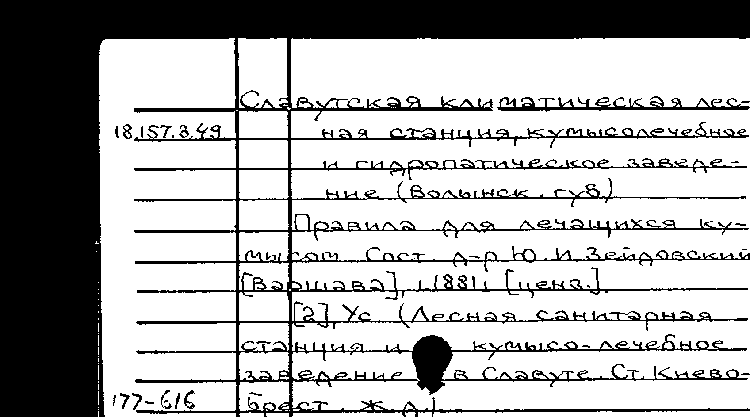 Славутская климатическая лес-
18.157.3.49 ная станция, кумысолечебное
и гидропатическое заведе-
ние (Волынск. губ.)
Правила для лечащихся ку-
мысом. Сост. д-р Ю. И. Зейдовский
[Варшава], 1881; [ценз.].
[2], Ус (Лесная санитарная
станция и кумысо-лечебное
заведение в Славуте. Ст. Киево-
177-616 Брест. ж. д.)